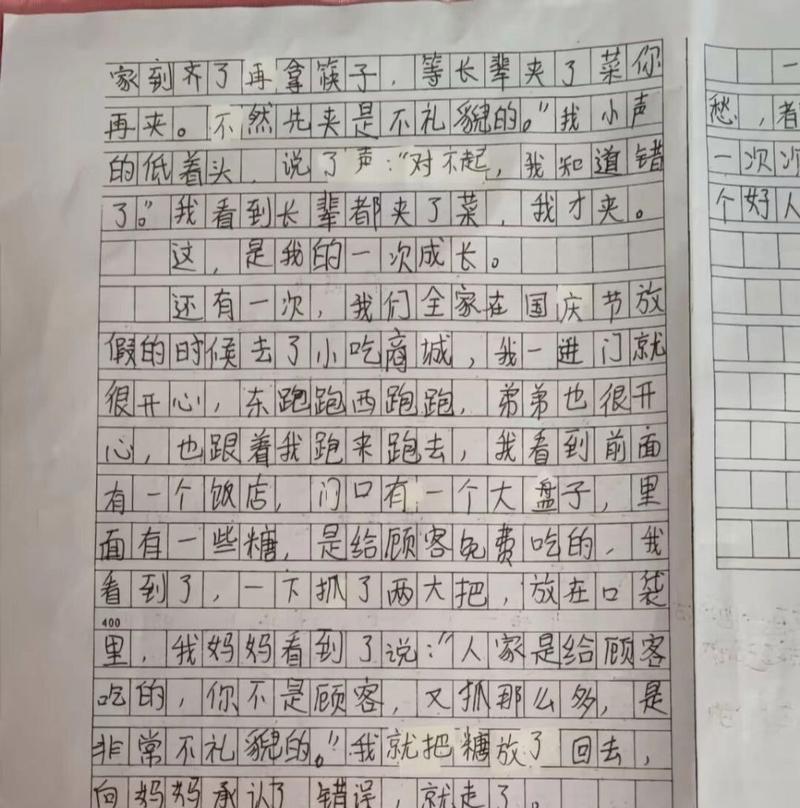 家到齐了再拿筷子，等长辈夹了菜你
再夹。不然先夹是不礼貌的。”我小声
的低着头，说了声：“对不起，我知道错
了。”我看到长辈都夹了菜，我才夹。
这，是我的一次成长。
还有一次，我们全家在国庆节放
假的时候去了小吃商城，我一进门就
很开心，东跑跑西跑跑，弟弟也很开
心，也跟着我跑来跑去，我看到前面
有一个饭店，门口有一个大盘子，里
面有一些糖，是给顾客免费吃的，我
看到了，一下抓了两大把，放在口袋
400
里，我妈妈看到了说：“人家是给顾客
吃的，你不是顾客，又抓那么多，是
非常不礼貌的。”我就把糖放了回去，
向妈妈承认了错误，就走了。
一
愁，者
一次次
个好人